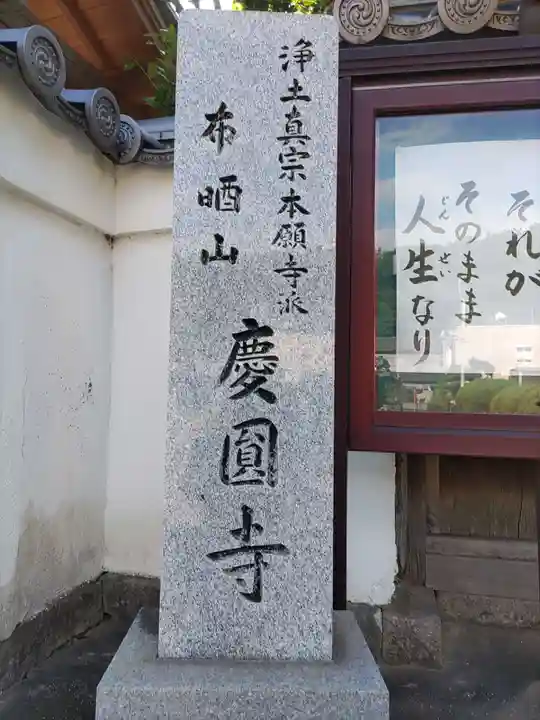 浄土真宗本願寺派
布晒山
慶圓寺
それが
そのまま
人生なり
じんせい